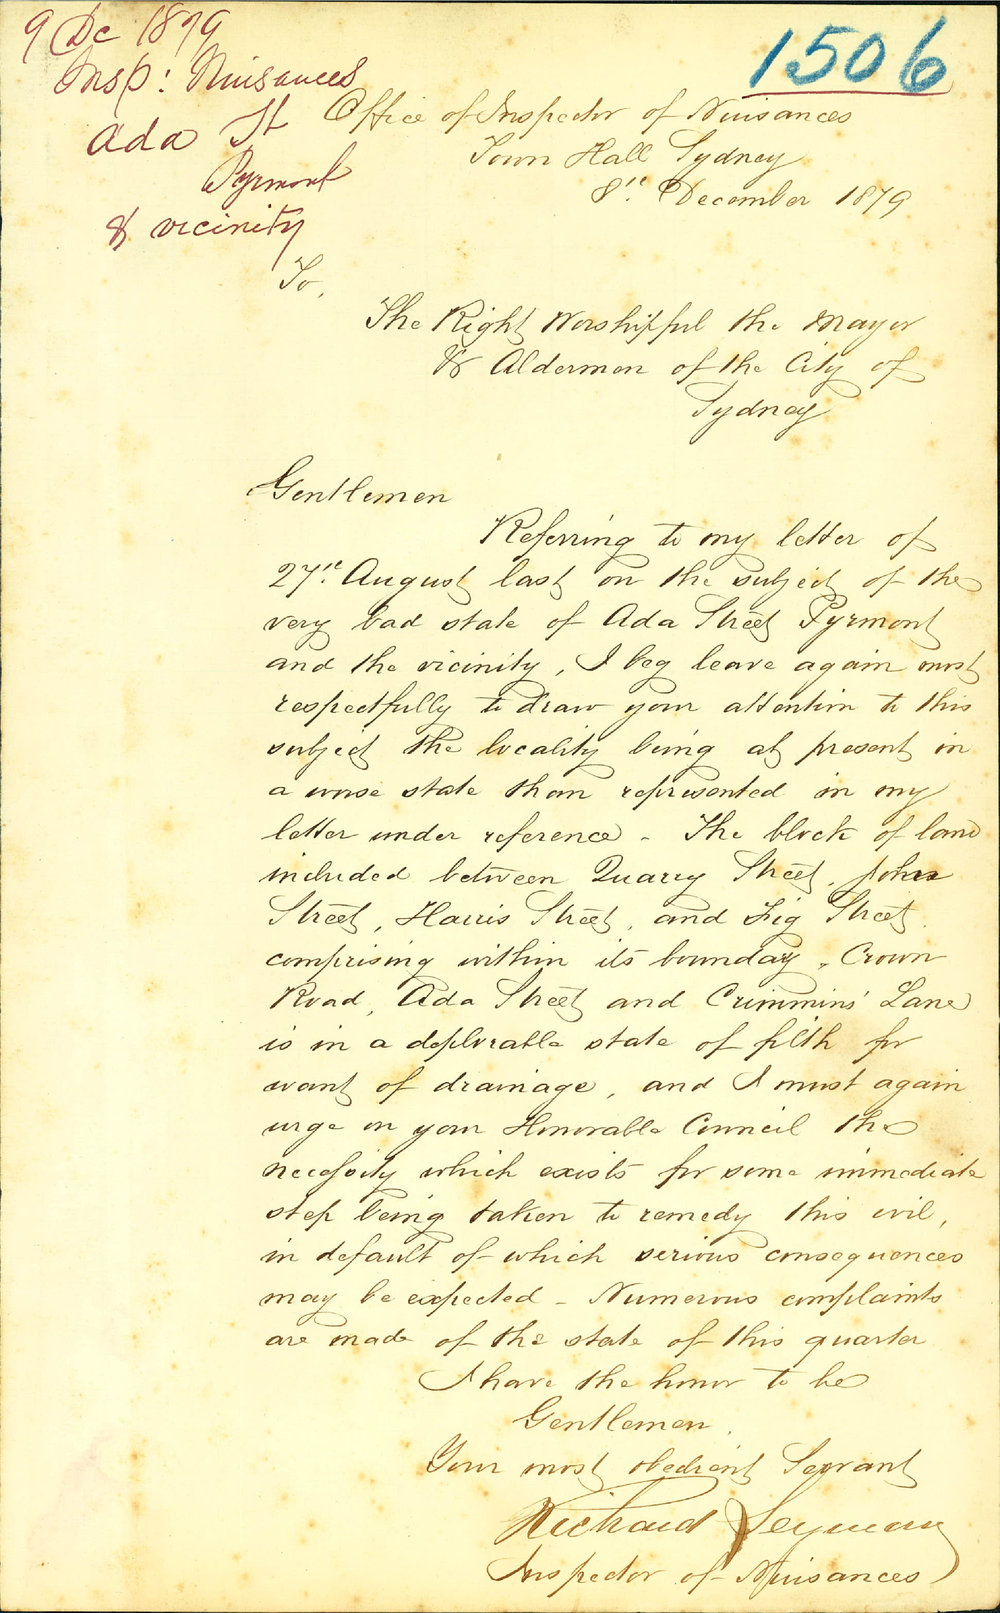 9 Dc 1879
Insp: Nuisances
Ada St
Pyrmont
& vicinity
1506
Office of Inspector of Nuisances
Town Hall Sydney
8th December 1879
To,
The Right Worshipful the Mayor
& Aldermen of the City of
Sydney
Gentlemen
Referring to my letter of
27th August last on the subject of the
very bad state of Ada Street Pyrmont
and the vicinity, I beg leave again most
respectfully to draw your attention to this
subject the locality being at present in
a worse state than represented in my
letter under reference - The block of land
included between Quarry Street, John
Street, Harris Street, and Fig Street
comprising within its bounday, Crown
Road, Ada Street and Crimmins' Lane
is in a deplorable state of filth for
want of drainage, and I must again
urge on your Honorable Council the
necessity which exists for some immediate
step being taken to remedy this evil,
in default of which serious consequences
may be expected - Numerous complaints
are made of the state of this quarter
I have the honor to be
Gentlemen,
Your most obedient Servant
Richard Seymour
Inspector of Nuisances